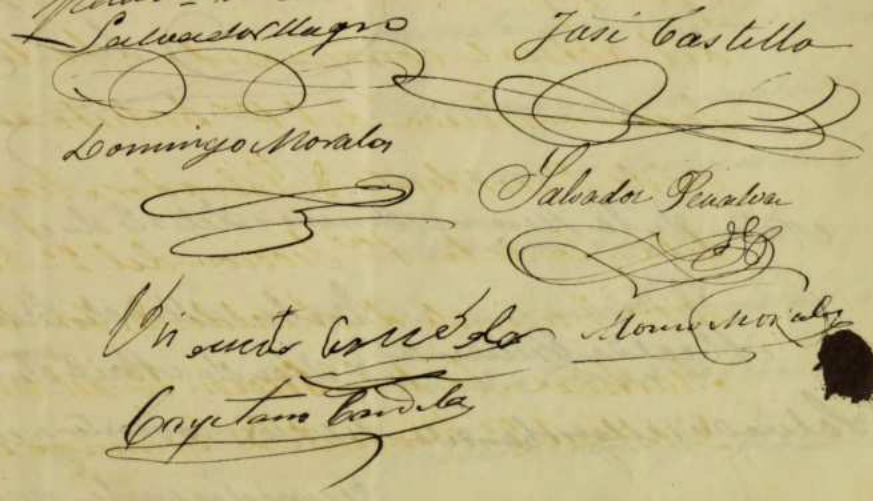 Salvador Magro
José Castillo
Domingo Morales
Salvador Penalva
Vicente
Morales
Cayetano Candela